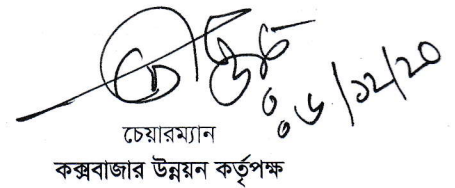 ০৬/১২/২০
চেয়ারম্যান
কক্সবাজার উন্নয়ন কর্তৃপক্ষ